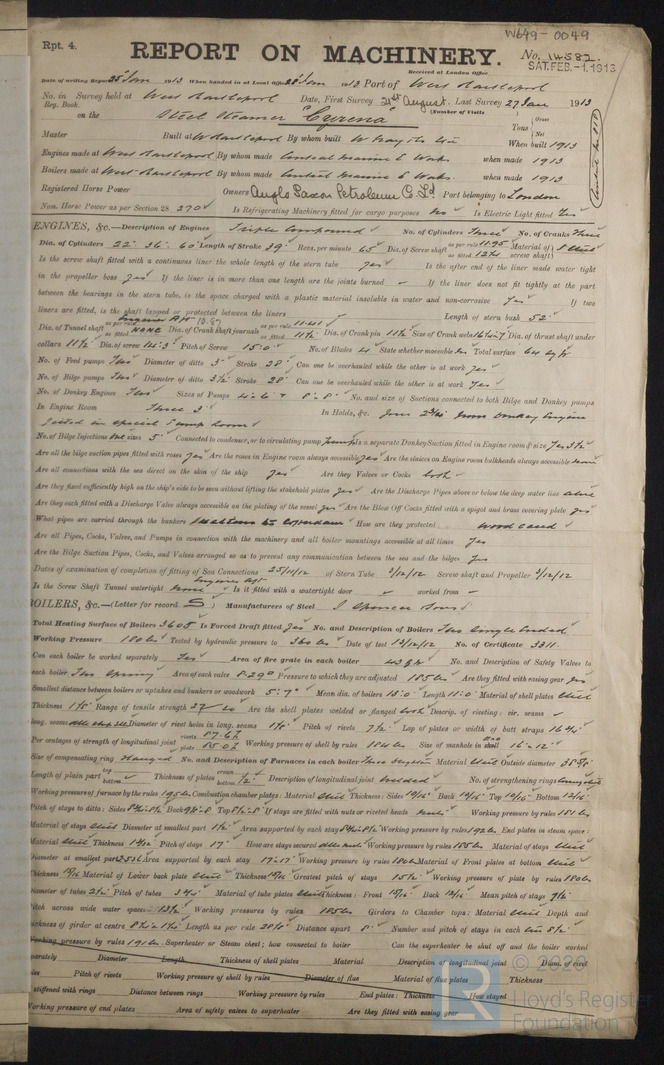 W649-0049
Rpt. 4.
REPORT ON MACHINERY.
No. 14582
SAT. FEB. -1. 1913
Received at London Office
Date of writing Report 25 Jan 1913 When handed in at Local Office 28 Jan 1913 Port of West Hartlepool
No. in Survey held at West Hartlepool Date, First Survey 21st August Last Survey 27 Jan 1913
Reg. Book. (Number of Visits
on the Steel Steamer Cyrena Tons Gross Net
Master Built at W Hartlepool By whom built W Gray & Co Ltd When built 1913
Engines made at West Hartlepool By whom made Central Marine E Works when made 1913
Boilers made at West Hartlepool By whom made Central Marine E Works when made 1913
Registered Horse Power Owners Anglo Saxon Petroleum C. Ld Port belonging to London
Nom. Horse Power as per Section 28 270 Is Refrigerating Machinery fitted for cargo purposes No Is Electric Light fitted Yes
ENGINES, &c.—Description of Engines Triple Compound No. of Cylinders Three No. of Cranks Three
Dia. of Cylinders 22" 36" 60" Length of Stroke 39" Revs. per minute 65 Dia. of Screw shaft as per rule 11.95 as fitted Material of screw shaft Steel
Is the screw shaft fitted with a continuous liner the whole length of the stern tube yes Is the after end of the liner made water tight
in the propeller boss yes If the liner is in more than one length are the joints burned – If the liner does not fit tightly at the part
between the bearings in the stern tube, is the space charged with a plastic material insoluble in water and non-corrosive Yes If two
liners are fitted, is the shaft lapped or protected between the liners Length of stern bush 52"
Dia. of Tunnel shaft as per rule as fitted NONE Dia. of Crank shaft journals as per rule 11.41 as fitted 11½ Dia. of Crank pin 11½ Size of Crank webs Dia. of thrust shaft under
collars 11½ Dia. of screw 14.3 Pitch of Screw 15.0 No. of Blades 4 State whether moveable Total surface
No. of Feed pumps Two Diameter of ditto 3" Stroke 28" Can one be overhauled while the other is at work yes
No. of Bilge pumps Two Diameter of ditto 3½ Stroke 28" Can one be overhauled while the other is at work Yes
No. of Donkey Engines Two Sizes of Pumps No. and size of Suctions connected to both Bilge and Donkey pumps
In Engine Room Three 3" In Holds, &c. from Donkey Engine
fitted in special Pump Room
No. of Bilge Injections one sizes 5" Connected to condenser, or to circulating pump pump Is a separate Donkey Suction fitted in Engine room & size Yes 3½
Are all the bilge suction pipes fitted with roses Yes Are the roses in Engine room always accessible yes Are the sluices on Engine room bulkheads always accessible none
Are all connections with the sea direct on the skin of the ship yes Are they Valves or Cocks both
Are they fixed sufficiently high on the ship's side to be seen without lifting the stokehold plates yes Are the Discharge Pipes above or below the deep water line above
Are they each fitted with a Discharge Valve always accessible on the plating of the vessel yes Are the Blow Off Cocks fitted with a spigot and brass covering plate yes
What pipes are carried through the bunkers How are they protected wood cased
Are all Pipes, Cocks, Valves, and Pumps in connection with the machinery and all boiler mountings accessible at all times Yes
Are the Bilge Suction Pipes, Cocks, and Valves arranged so as to prevent any communication between the sea and the bilges Yes
Dates of examination of completion of fitting of Sea Connections 25/11/12 of Stern Tube 3/12/12 Screw shaft and Propeller 3/12/12
Is the Screw Shaft Tunnel watertight none Engines aft Is it fitted with a watertight door – worked from –
BOILERS, &c.—(Letter for record S) Manufacturers of Steel J Spencer Sons
Total Heating Surface of Boilers 3605 Is Forced Draft fitted yes No. and Description of Boilers Two Single Ended
Working Pressure 180 lbs Tested by hydraulic pressure to 360 lbs Date of test No. of Certificate 3311
Can each boiler be worked separately Yes Area of fire grate in each boiler No. and Description of Safety Valves to
each boiler Two Spring Area of each valve 8.290 Pressure to which they are adjusted 185 lbs Are they fitted with easing gear yes
Smallest distance between boilers or uptakes and bunkers or woodwork 5'.7" Mean dia. of boilers Length 11.0 Material of shell plates Steel
Thickness Range of tensile strength Are the shell plates welded or flanged both Descrip. of riveting: cir. seams
long. seams Diameter of rivet holes in long. seams Pitch of rivets 7½ Lap of plates or width of butt straps 16¼
Per centages of strength of longitudinal joint rivets 87.62 plate 85.02 Working pressure of shell by rules 184 lbs Size of manhole in shell 16"·12"
Size of compensating ring flanged No. and Description of Furnaces in each boiler Three Deighton Material Steel Outside diameter
Length of plain part top bottom Thickness of plates crown bottom Description of longitudinal joint welded No. of strengthening rings
Working pressure of furnace by the rules 195 lbs Combustion chamber plates: Material Steel Thickness: Sides Back Top Bottom
Pitch of stays to ditto: Sides Back Top If stays are fitted with nuts or riveted heads nuts Working pressure by rules 181 lbs
Material of stays Steel Diameter at smallest part Area supported by each stay Working pressure by rules 192 lbs End plates in steam space:
Material Steel Thickness Pitch of stays 17" How are stays secured Working pressure by rules 185 lbs Material of stays Steel
Diameter at smallest part Area supported by each stay 17"·17" Working pressure by rules 180 lbs Material of Front plates at bottom Steel
Thickness Material of Lower back plate Steel Thickness Greatest pitch of stays Working pressure of plate by rules 180 lbs
Diameter of tubes 2½ Pitch of tubes 3¾ Material of tube plates Steel Thickness: Front Back Mean pitch of stays
Pitch across wide water spaces 13½ Working pressures by rules 185 lbs Girders to Chamber tops: Material Steel Depth and
thickness of girder at centre Length as per rule Distance apart 8" Number and pitch of stays in each
Working pressure by rules 191 lbs Superheater or Steam chest; how connected to boiler Can the superheater be shut off and the boiler worked
separately Diameter Length Thickness of shell plates Material Description of longitudinal joint Diam. of rivet
holes Pitch of rivets Working pressure of shell by rules Diameter of flue Material of flue plates Thickness
If stiffened with rings Distance between rings Working pressure by rules End plates: Thickness How stayed
Working pressure of end plates Area of safety valves to superheater Are they fitted with easing gear
© 2020
Lloyd's Register
Foundation